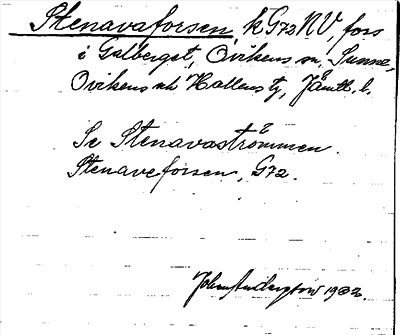 Stenavaforsen, k G72 NV, fors
i Galberget, Ovikens sn, Sunne,
Ovikens och Hallens tg, Jämtl. l.
Se Stenavaströmmen.
Stenaveforsen, G72.
1932.